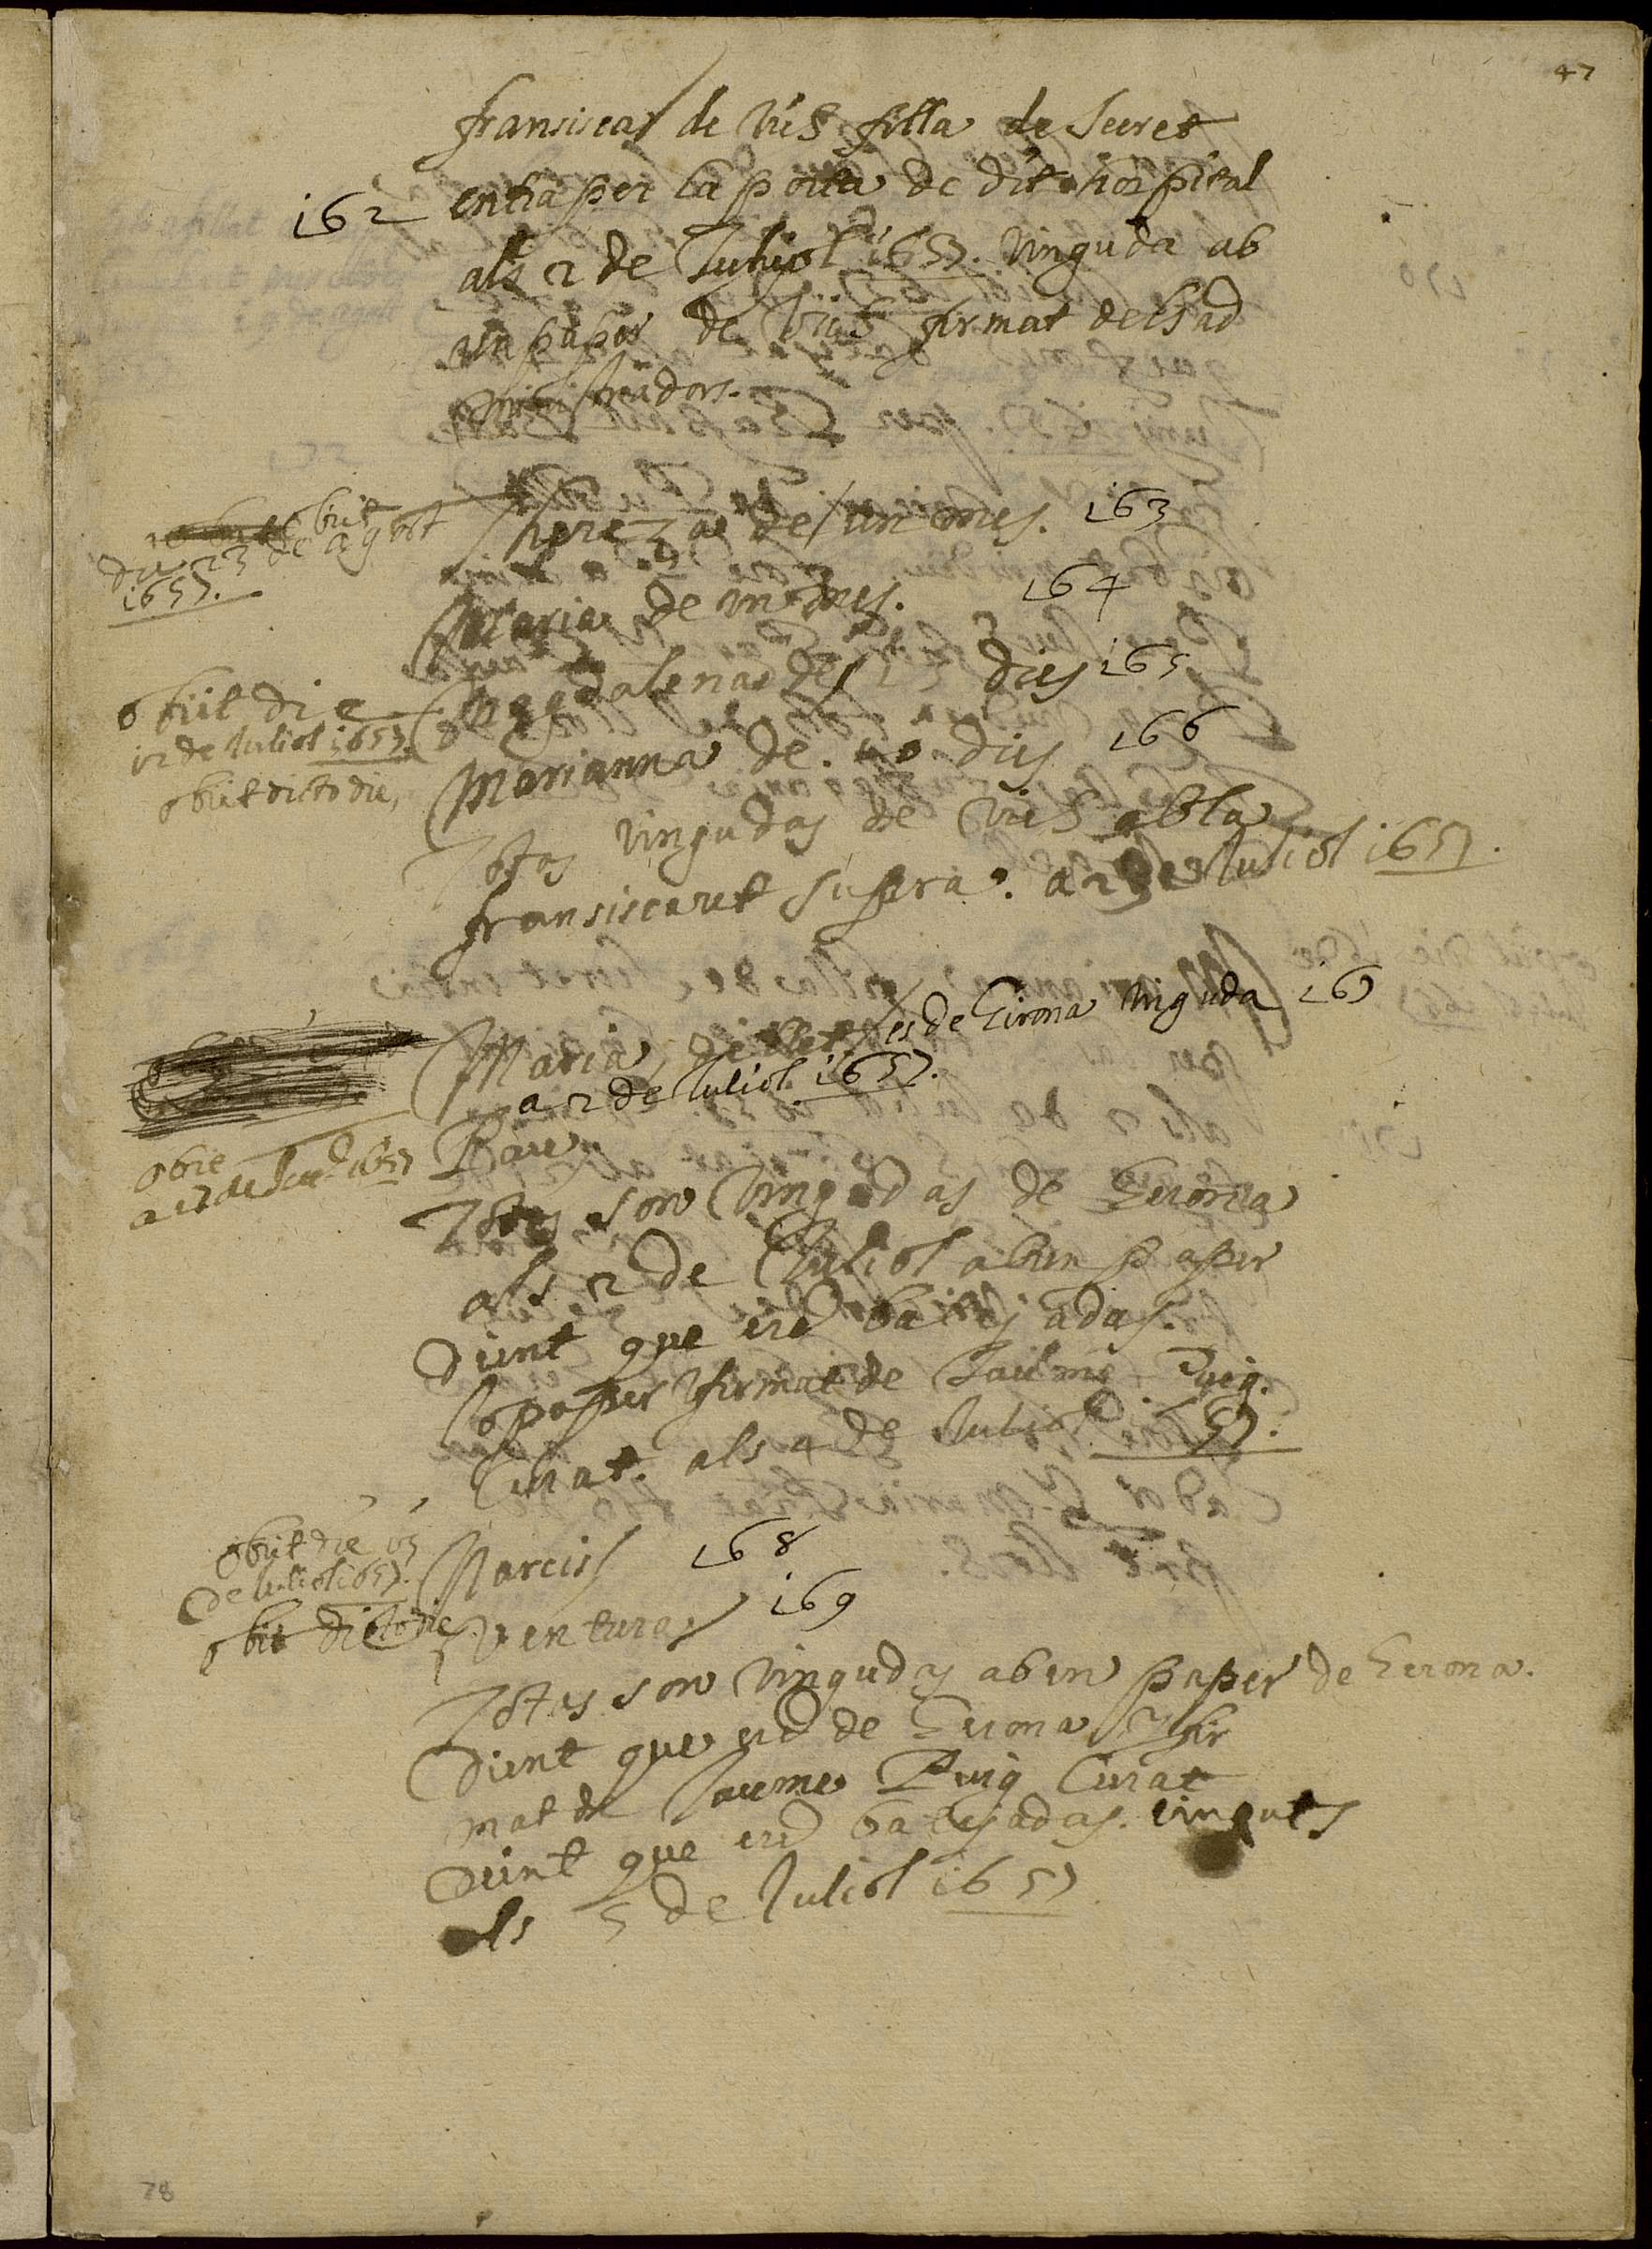 47
fransisca de Vich filla de Secret
162 entra per la porta de dit hospital
als 2 de Juliol 1657. vinguda ab
un paper de Vich firmat dels ad
ministradors.
obiit
die 23 de agost
1657.
Thereza de un mes. 163
Maria de un mes. 164
obiit die
12 de Juliol 1657.
Magdalena de 15 dies 165
obiit dicto die,
Marianna de 40 dies 166
Totas vingudas de Vich ab la
fransisca ut supra. a 2 de Juliol 1657.
Maria, es de Girona vinguda 167
a 2 de Juliol 1657.
obie
a 17 de 1657
Totes son vingudas de Gerona
als 2 de Juliol ab un paper
dient que ere batejadas.
lo paper firmat de Jaume Puig.
Curat. als 4 de Juliol 57.
obiit die
de Juliol 1657.
Narcis 168
obit dicto die
Ventura 169
Totes son vingudas ab un paper de Gerona.
dient que ere de Gerona y fir
mat de Jaume Puig Curat
dient que ere batejadas. vinguts
als 5 de Juliol 1657
78